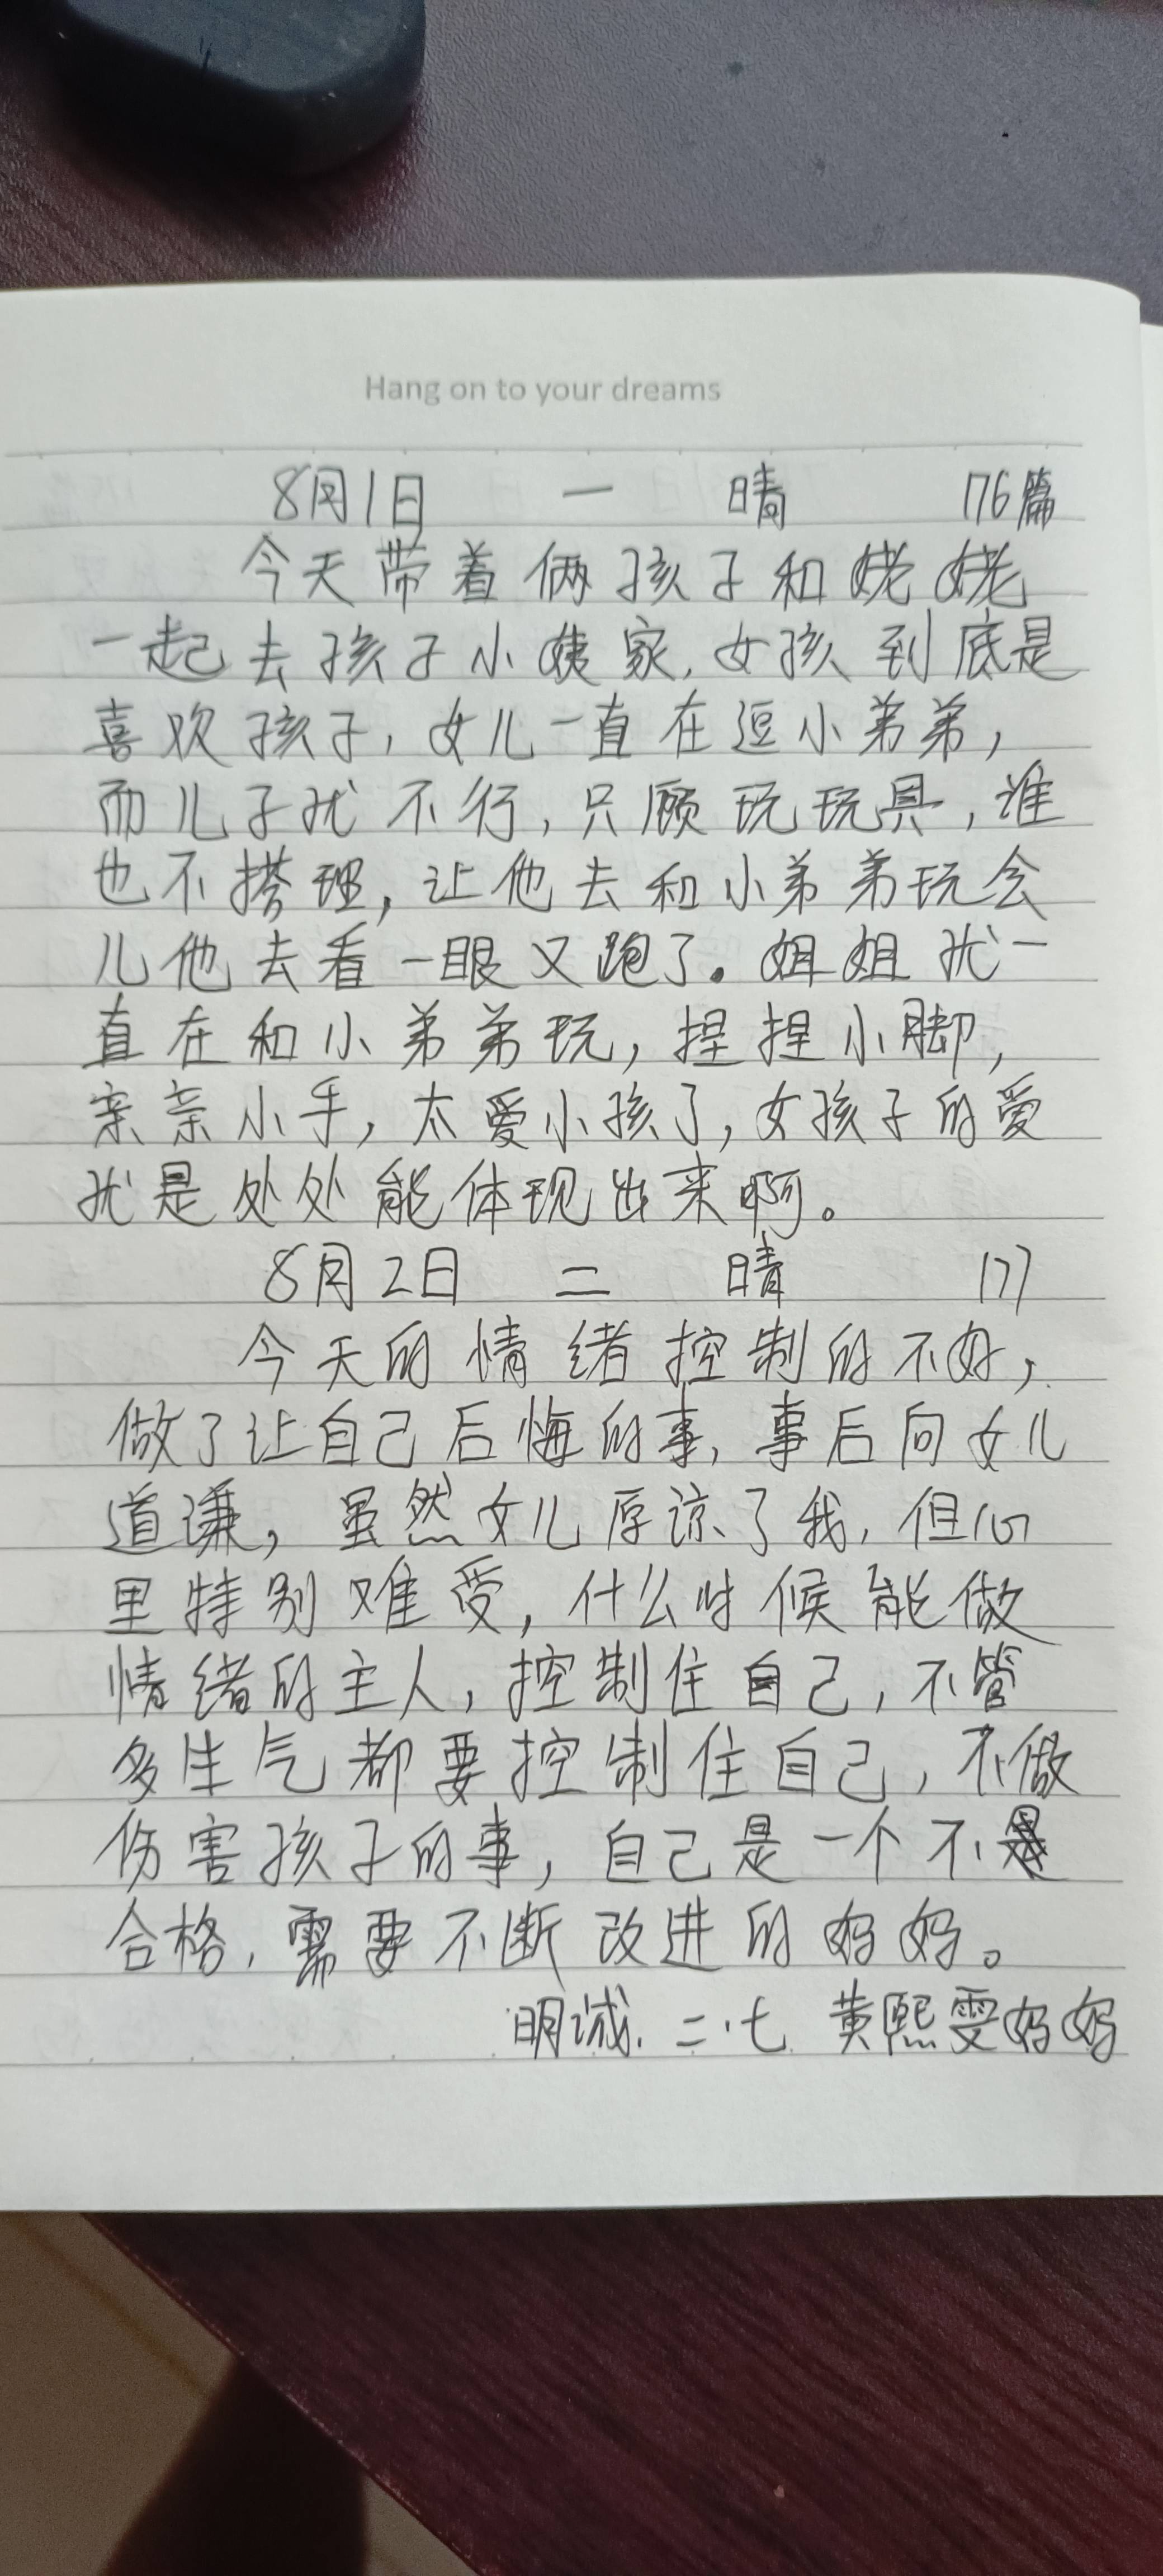 Hang on to your dreams
8月1日 一 晴 176篇
今天带着俩孩子和姥姥
一起去孩子小姨家,女孩到底是
喜欢孩子,女儿一直在逗小弟弟,
而儿子扰不行,只顾玩玩具,谁
也不搭理,让他去和小弟弟玩会
儿他去看一眼又跑了。姐姐扰一
直在和小弟弟玩,捏捏小脚,
亲亲小手,太爱小孩了,女孩子的爱
扰是处处能体现出来啊。
8月2日 二 晴 177
今天的情绪控制的不好,
做了让自己后悔的事,事后向女儿
道谦,虽然女儿原谅了我,但心
里特别难受,什么时候能做
情绪的主人,控制住自己,不管
多生气都要控制住自己,不做
伤害孩子的事,自己是一个不
合格,需要不断改进的妈妈。
明诚.二·七 黄熙雯妈妈